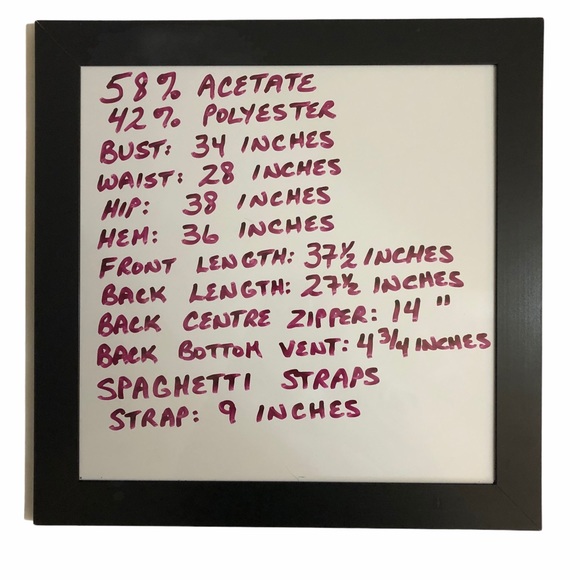 58% ACETATE
42% POLYESTER
BUST: 34 INCHES
WAIST: 28 INCHES
HIP: 38 INCHES
HEM: 36 INCHES
FRONT LENGTH: 37½ INCHES
BACK LENGTH: 27½ INCHES
BACK CENTRE ZIPPER: 14 "
BACK BOTTOM VENT: 4 3/4 INCHES
SPAGHETTI STRAPS
STRAP: 9 INCHES